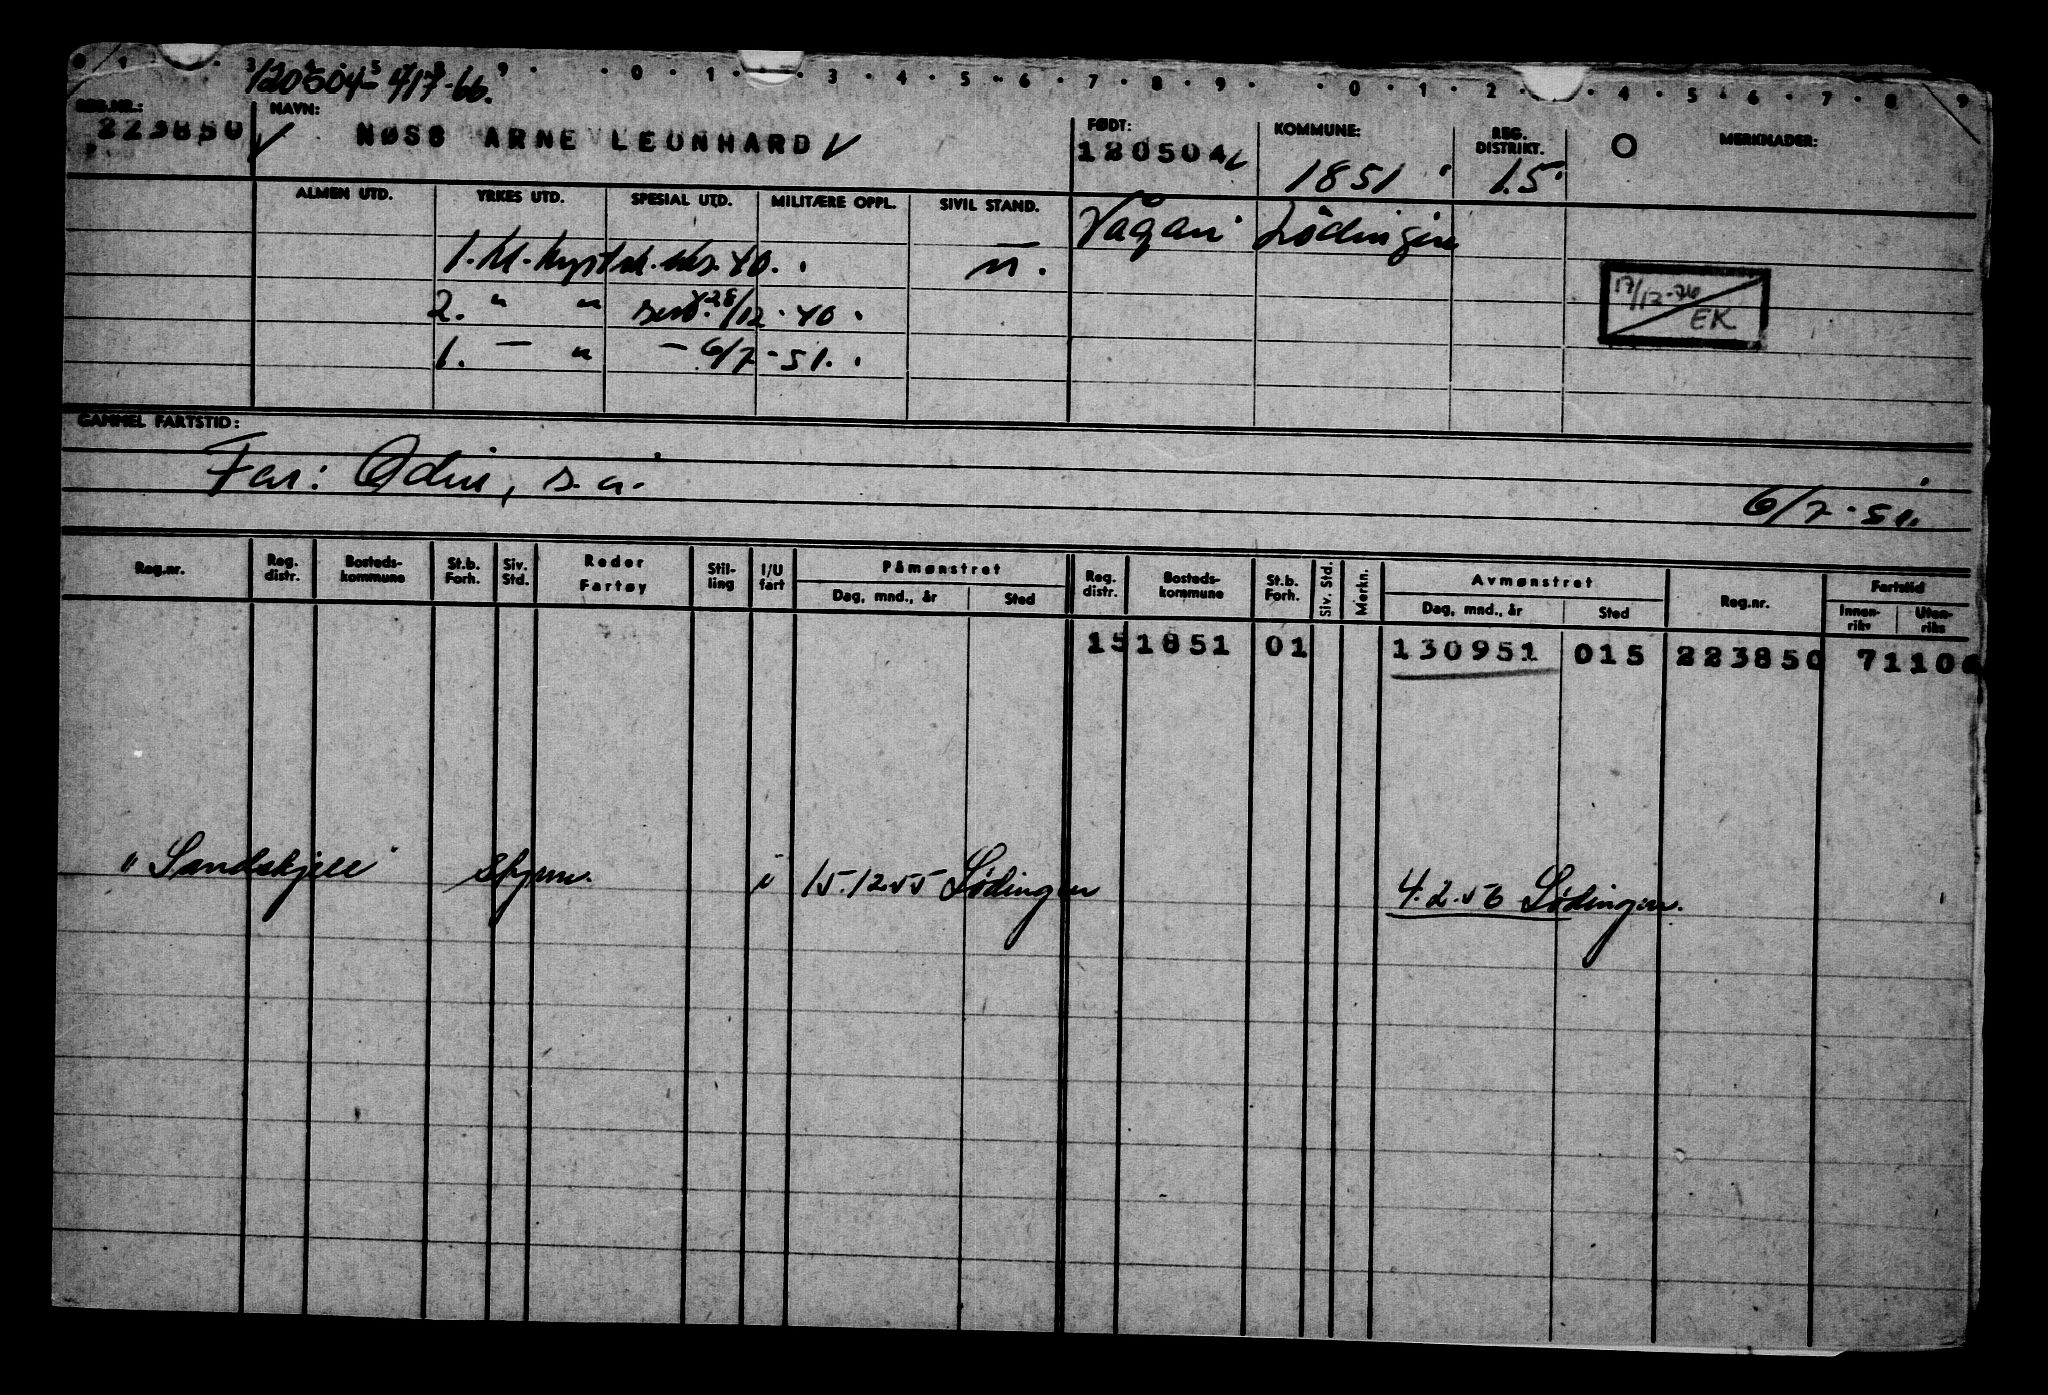 120504-417-66.
REG.NR.: NAVN: FØDT: KOMMUNE: REG. DISTRIKT. MERKNADER:
223850 NØSS ARNE LEONHARD 120504 1851 15
ALMEN UTD. YRKES UTD. SPESIAL UTD. MILITÆRE OPPL. SIVIL STAND. Vågan Lødingen
1. kl. kystsk. 40.
2. " " 28/12-40.
1. — " — 6/7-51.
17/12-76
EK
GAMMEL FARTSTID:
Far: Odin, s.a. 6/7-51.
Reg.nr. Reg. distr. Bosteds-kommune St.b. Forh. Siv. Std. Reder Fartøy Stil-ling I/U fart Påmønstret Dag, mnd., år Sted Reg. distr. Bosteds-kommune St.b. Forh. Siv. Std. Merkn. Avmønstret Dag, mnd., år Sted Reg.nr. Fartstid Innen-riks Uten-riks
15 1851 01 130951 015 223850 7110
"Sandskjell" i 15.12.55 Lødingen 4.2.56 Lødingen.